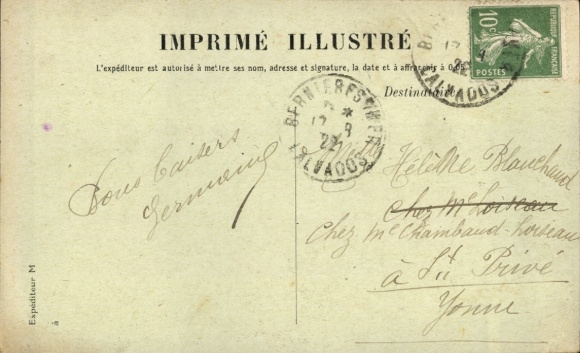 IMPRIMÉ ILLUSTRÉ
L'expéditeur est autorisé à mettre ses nom, adresse et signature, la date et à affranchir à 0.05
Destinataire
10c
POSTES
RÉPUBLIQUE FRANÇAISE
CALVADOS
BERNIERES S MER
22
CALVADOS
Bons baisers
Germaine
Hélène Blanchard
Chez Mc Loiseau
Chez Mc Chambaud-Loiseau
à St Privé
Yonne
Expéditeur M
à